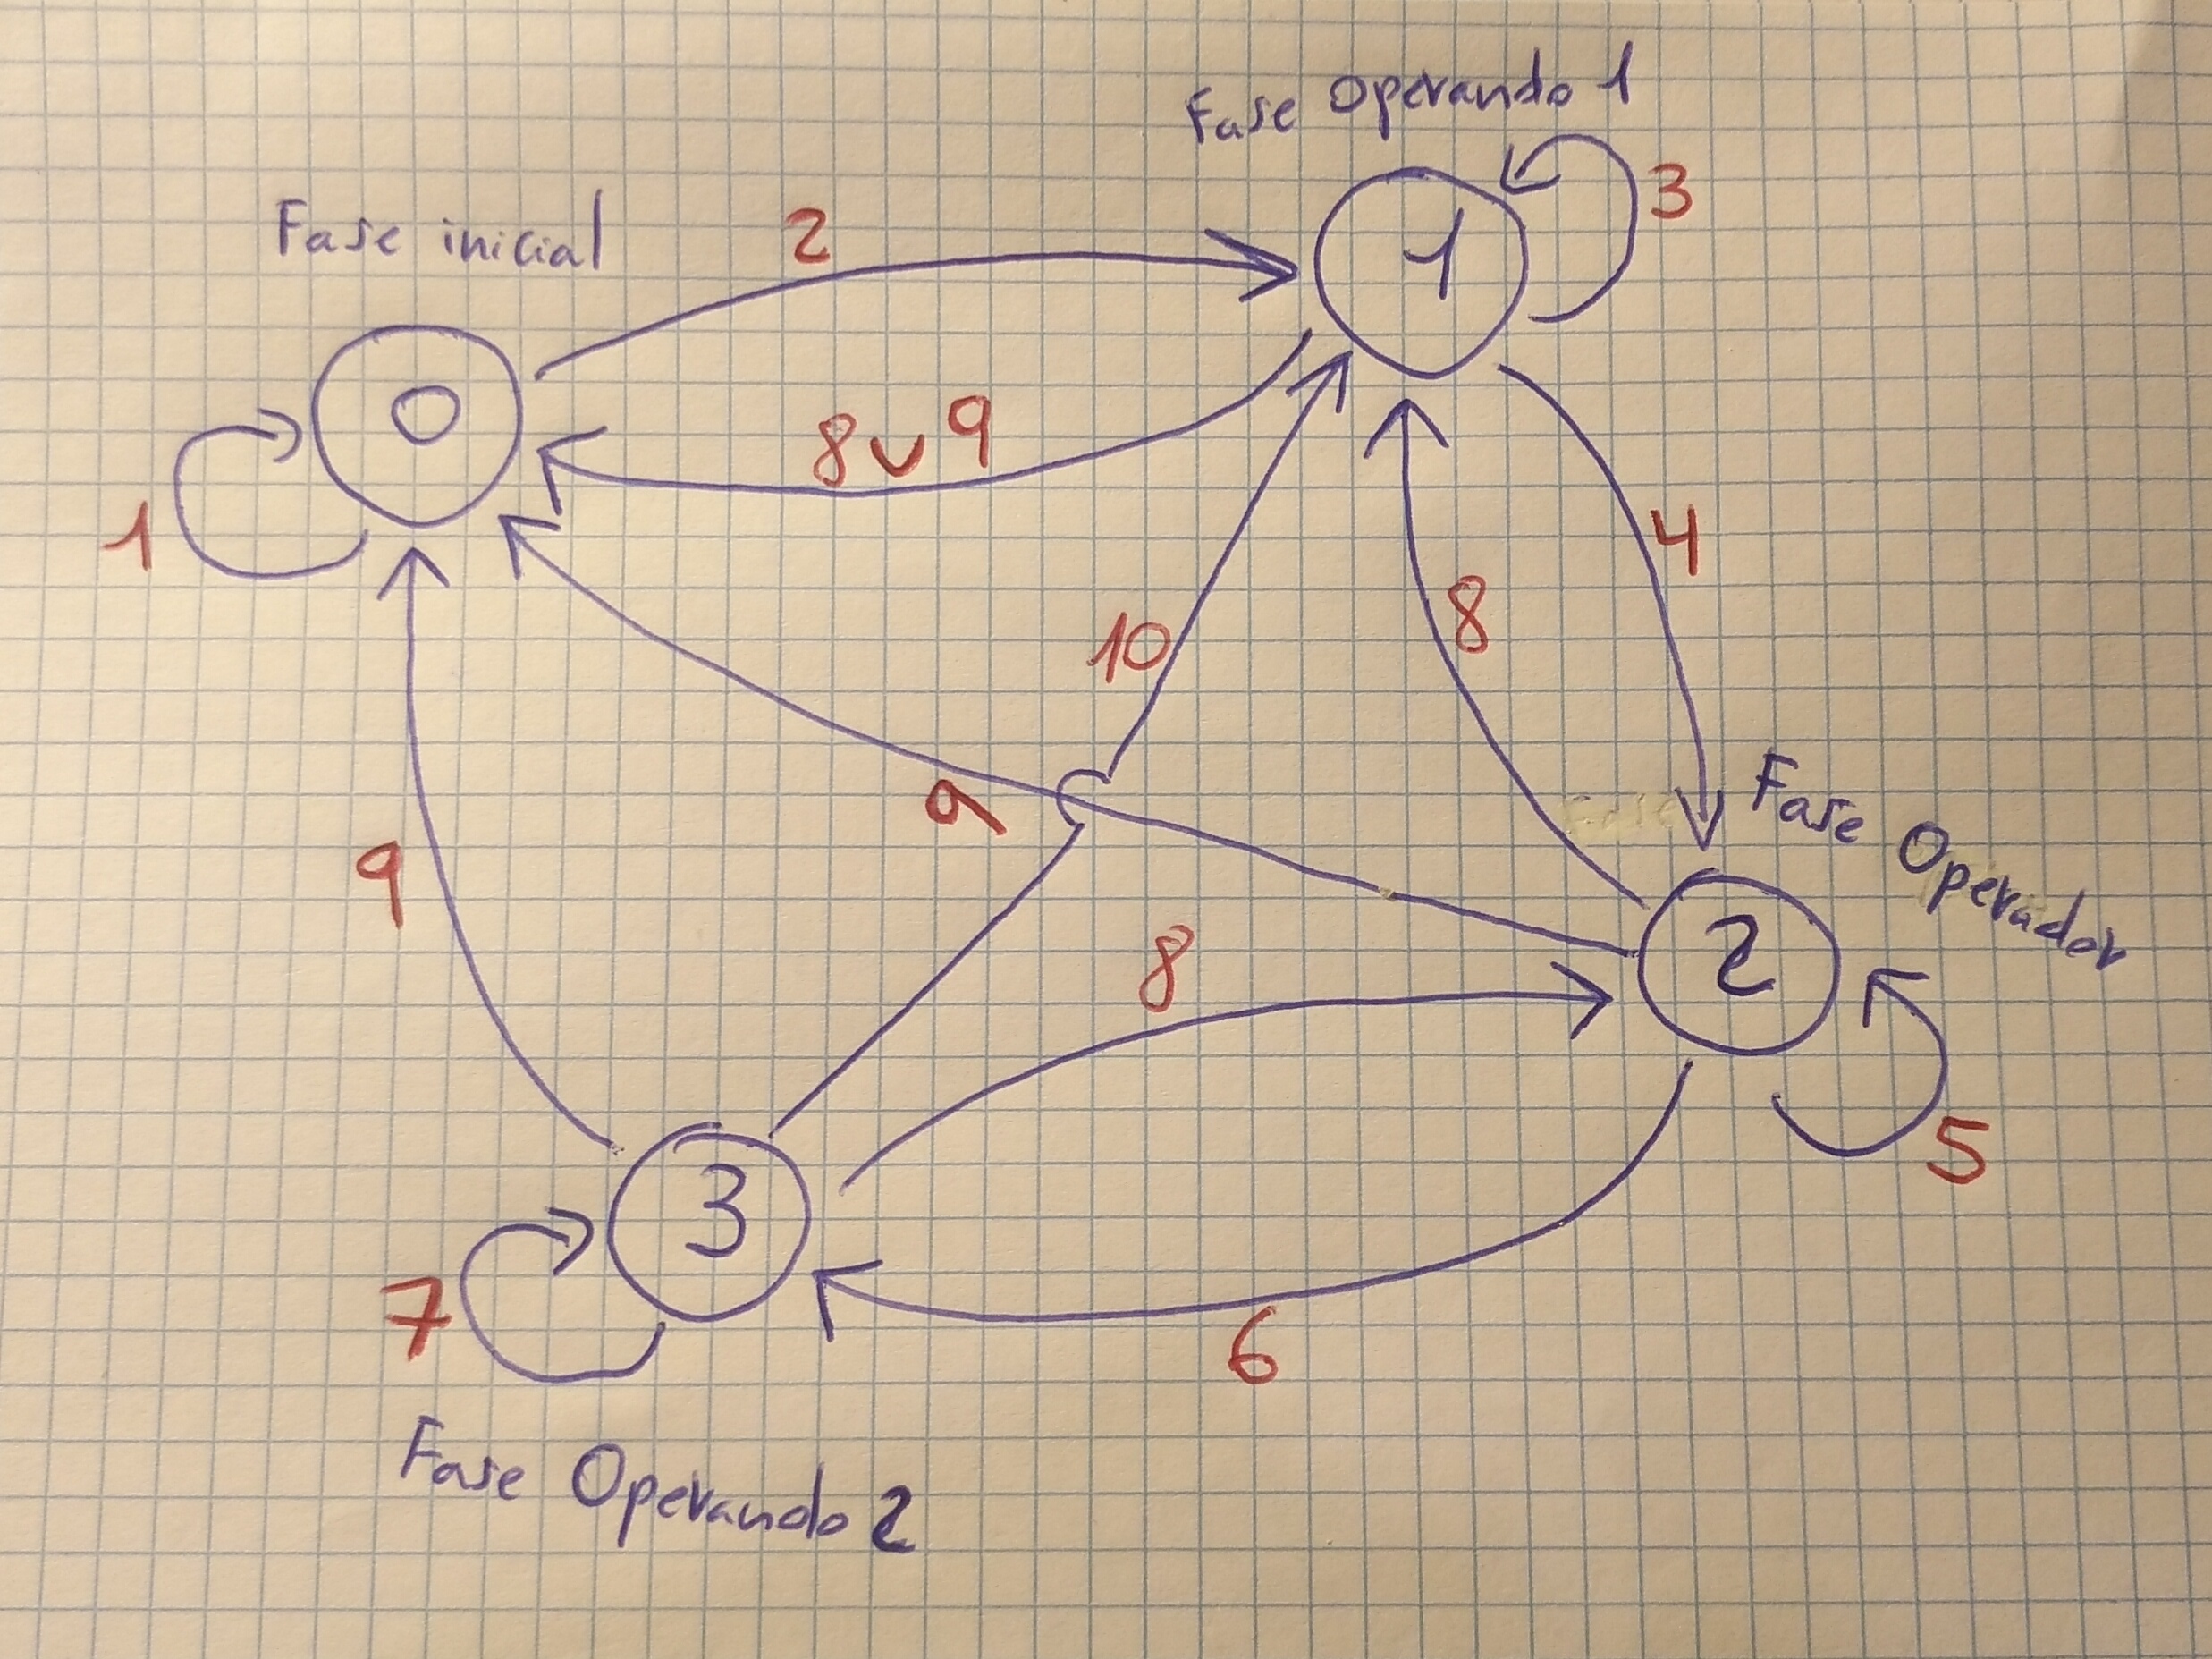 Fase Operando 1
Fase inicial
2
1
3
0
8 v 9
1
4
10
8
9
9
Fase Operador
8
2
3
5
7
6
Fase Operando 2